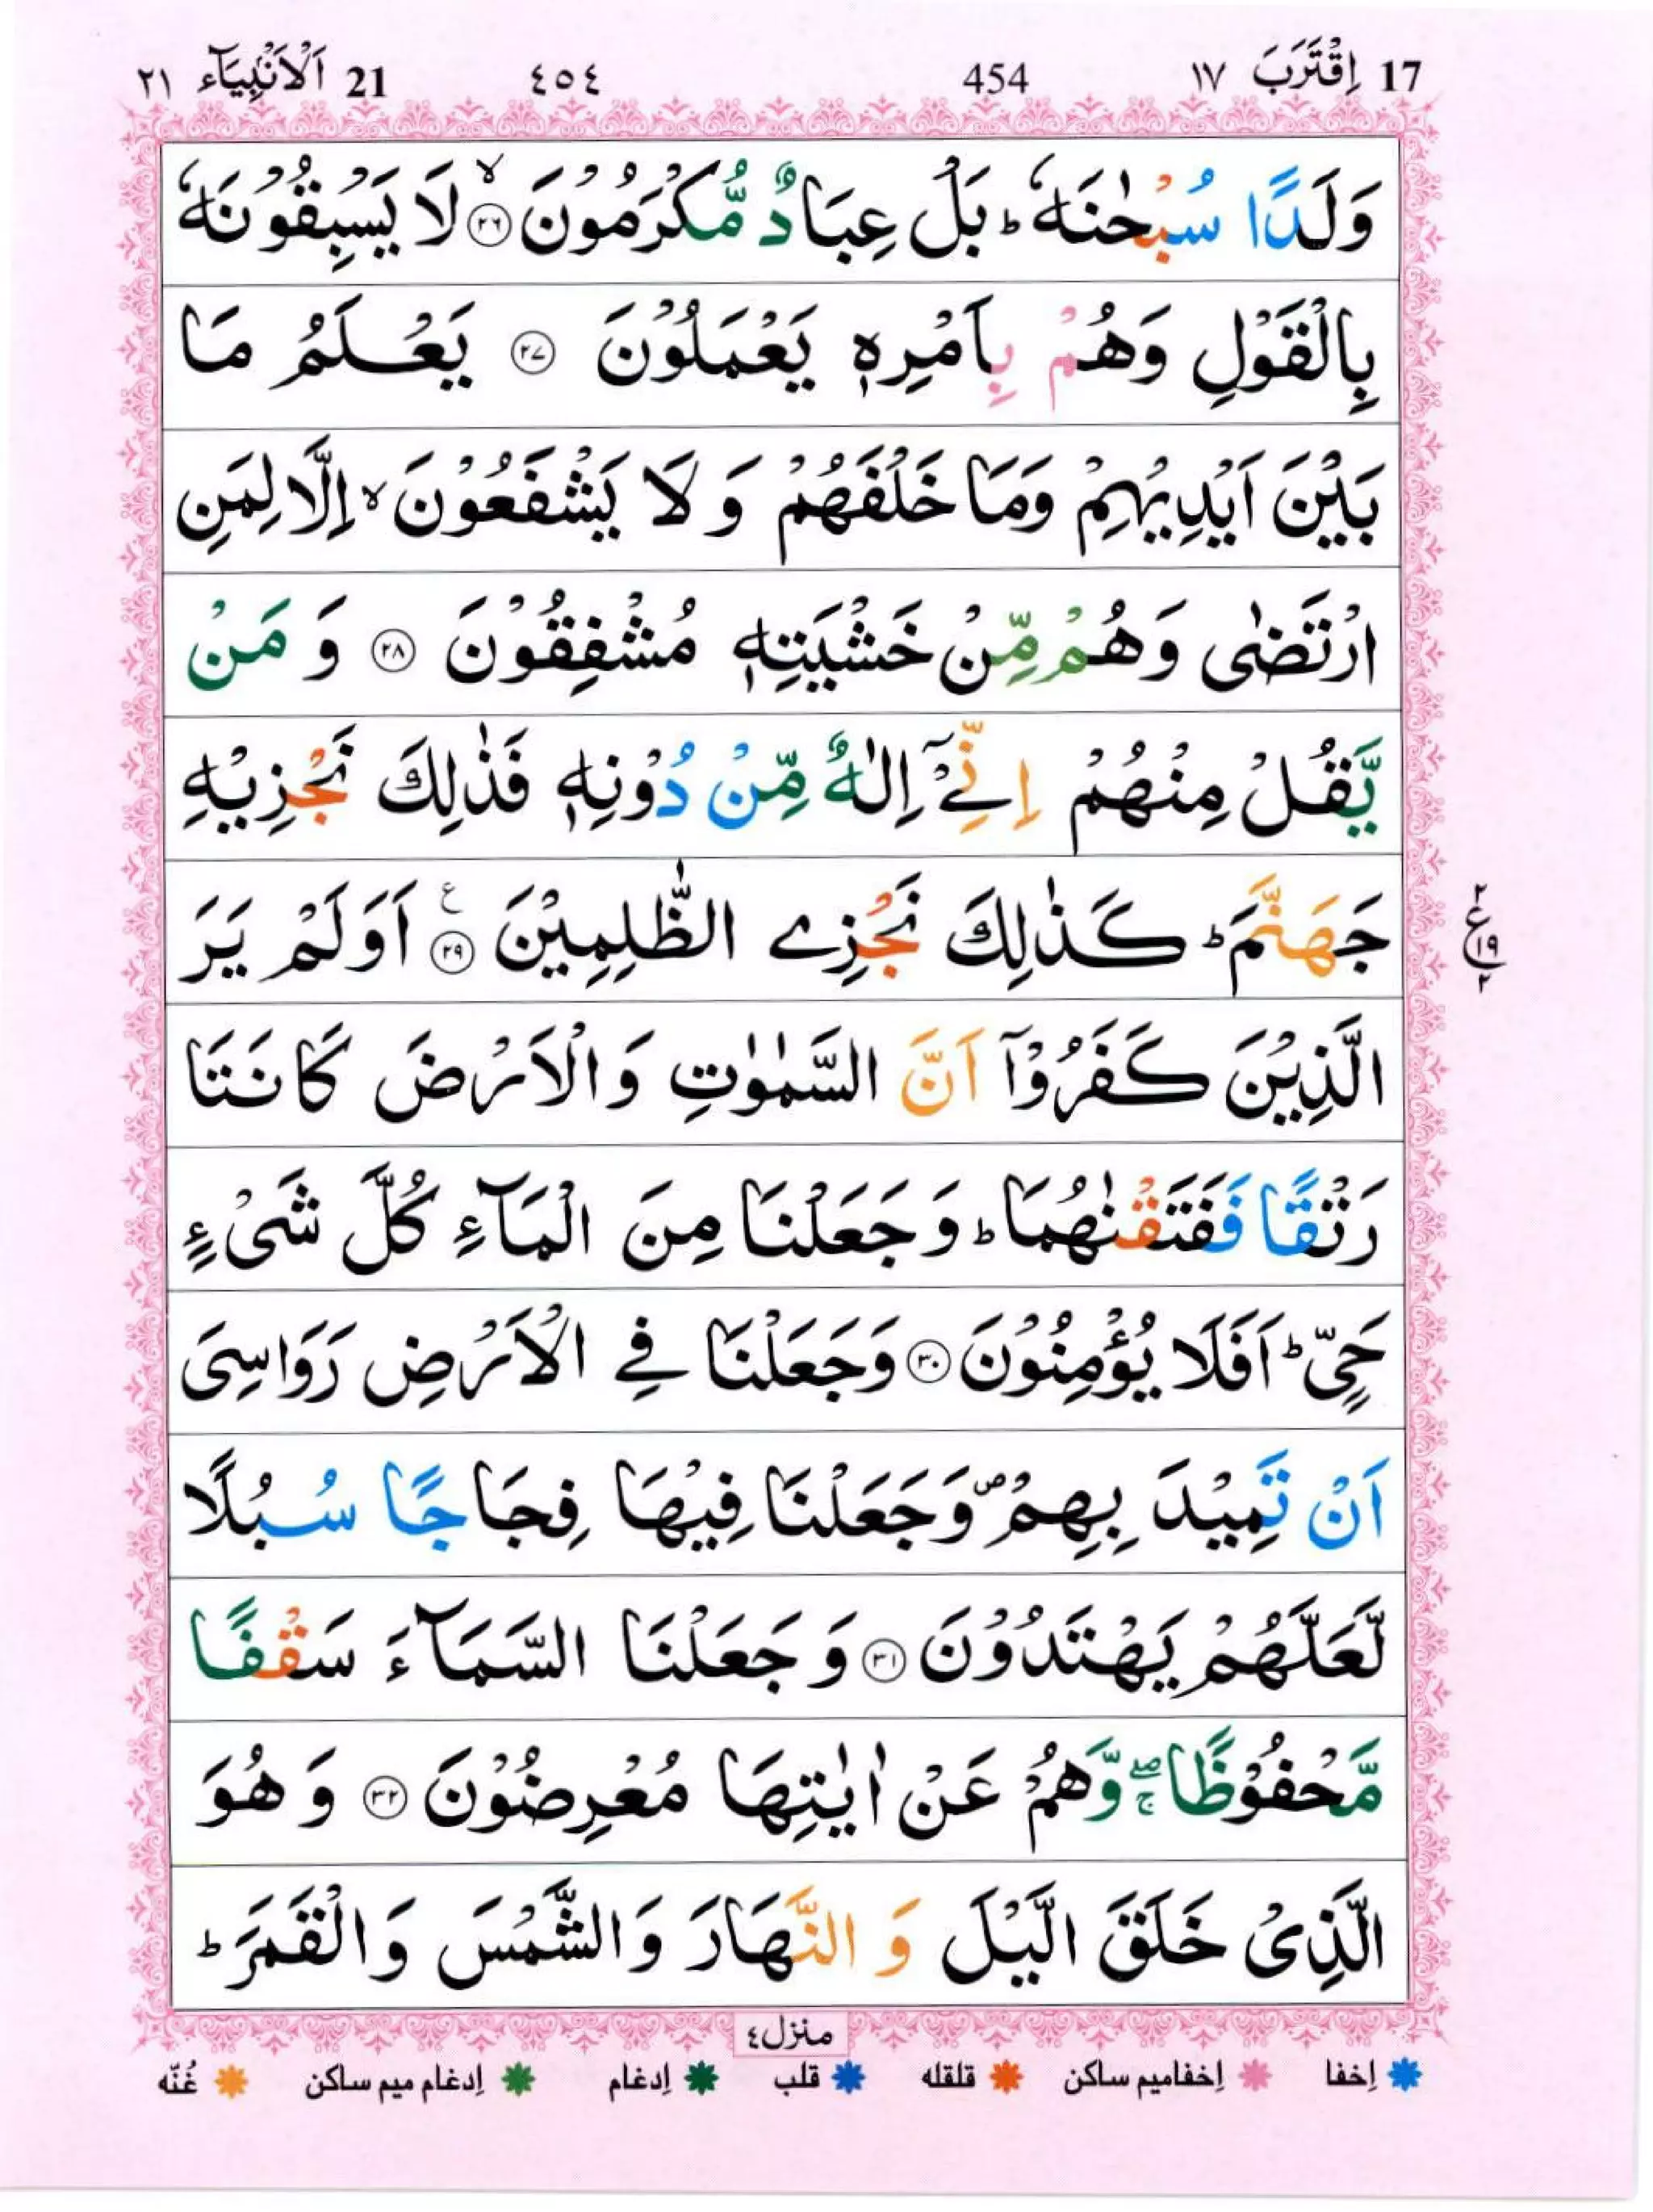 17 اِقْتَرَبَ ١٧ 454 ٤٥٤ 21 اَلْاَنْۢبِيَآء ٢١
وَلَدًا سُبْحٰنَهٗ ؕ بَلْ عِبَادٌ مُّكْرَمُوْنَ ۙ ﴿۲۶﴾ لَا يَسْبِقُوْنَهٗ
بِالْقَوْلِ وَهُمْ بِاَمْرِهٖ يَعْمَلُوْنَ ﴿۲۷﴾ يَعْلَمُ مَا
بَيْنَ اَيْدِيْهِمْ وَمَا خَلْفَهُمْ وَ لَا يَشْفَعُوْنَ ۙ اِلَّا لِمَنِ
ارْتَضٰى وَهُمْ مِّنْ خَشْيَتِهٖ مُشْفِقُوْنَ ﴿۲۸﴾ وَ مَنْ
يَّقُلْ مِنْهُمْ اِنِّيْۤ اِلٰهٌ مِّنْ دُوْنِهٖ فَذٰلِكَ نَجْزِيْهِ
جَهَنَّمَ ؕ كَذٰلِكَ نَجْزِے الظّٰلِمِيْنَ ﴿۲۹﴾ ع اَوَلَمْ يَرَ
٢ ع ١٩ ٢
الَّذِيْنَ كَفَرُوْۤا اَنَّ السَّمٰوٰتِ وَالْاَرْضَ كَانَتَا
رَتْقًا فَفَتَقْنٰهُمَا ؕ وَجَعَلْنَا مِنَ الْمَآءِ كُلَّ شَىْءٍ
حَىٍّ ؕ اَفَلَا يُؤْمِنُوْنَ ﴿۳۰﴾ وَجَعَلْنَا فِے الْاَرْضِ رَوَاسِىَ
اَنْ تَمِيْدَ بِهِمْ ۪ وَجَعَلْنَا فِيْهَا فِجَاجًا سُبُلًا
لَّعَلَّهُمْ يَهْتَدُوْنَ ﴿۳۱﴾ وَجَعَلْنَا السَّمَآءَ سَقْفًا
مَّحْفُوْظًا ۖۚ وَّهُمْ عَنْ اٰيٰتِهَا مُعْرِضُوْنَ ﴿۳۲﴾ وَهُوَ
الَّذِىْ خَلَقَ الَّيْلَ وَ النَّهَارَ وَالشَّمْسَ وَالْقَمَرَ ؕ
منزل ٤
إخفا إخفامیم ساکن قلقله قلب إدغام إدغام میم ساکن غُنّه